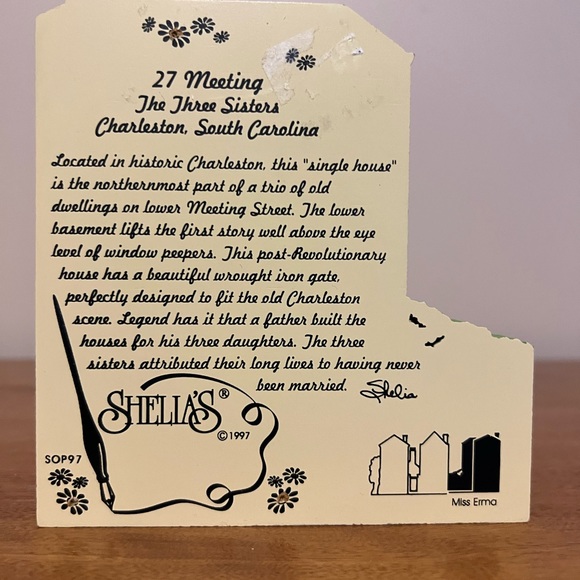 27 Meeting
The Three Sisters
Charleston, South Carolina
Located in historic Charleston, this "single house"
is the northernmost part of a trio of old
dwellings on lower Meeting Street. The lower
basement lifts the first story well above the eye
level of window peepers. This post-Revolutionary
house has a beautiful wrought iron gate,
perfectly designed to fit the old Charleston
scene. Legend has it that a father built the
houses for his three daughters. The three
sisters attributed their long lives to having never
been married. Shelia
SHELIA'S®
©1997
SOP97
Miss Erma